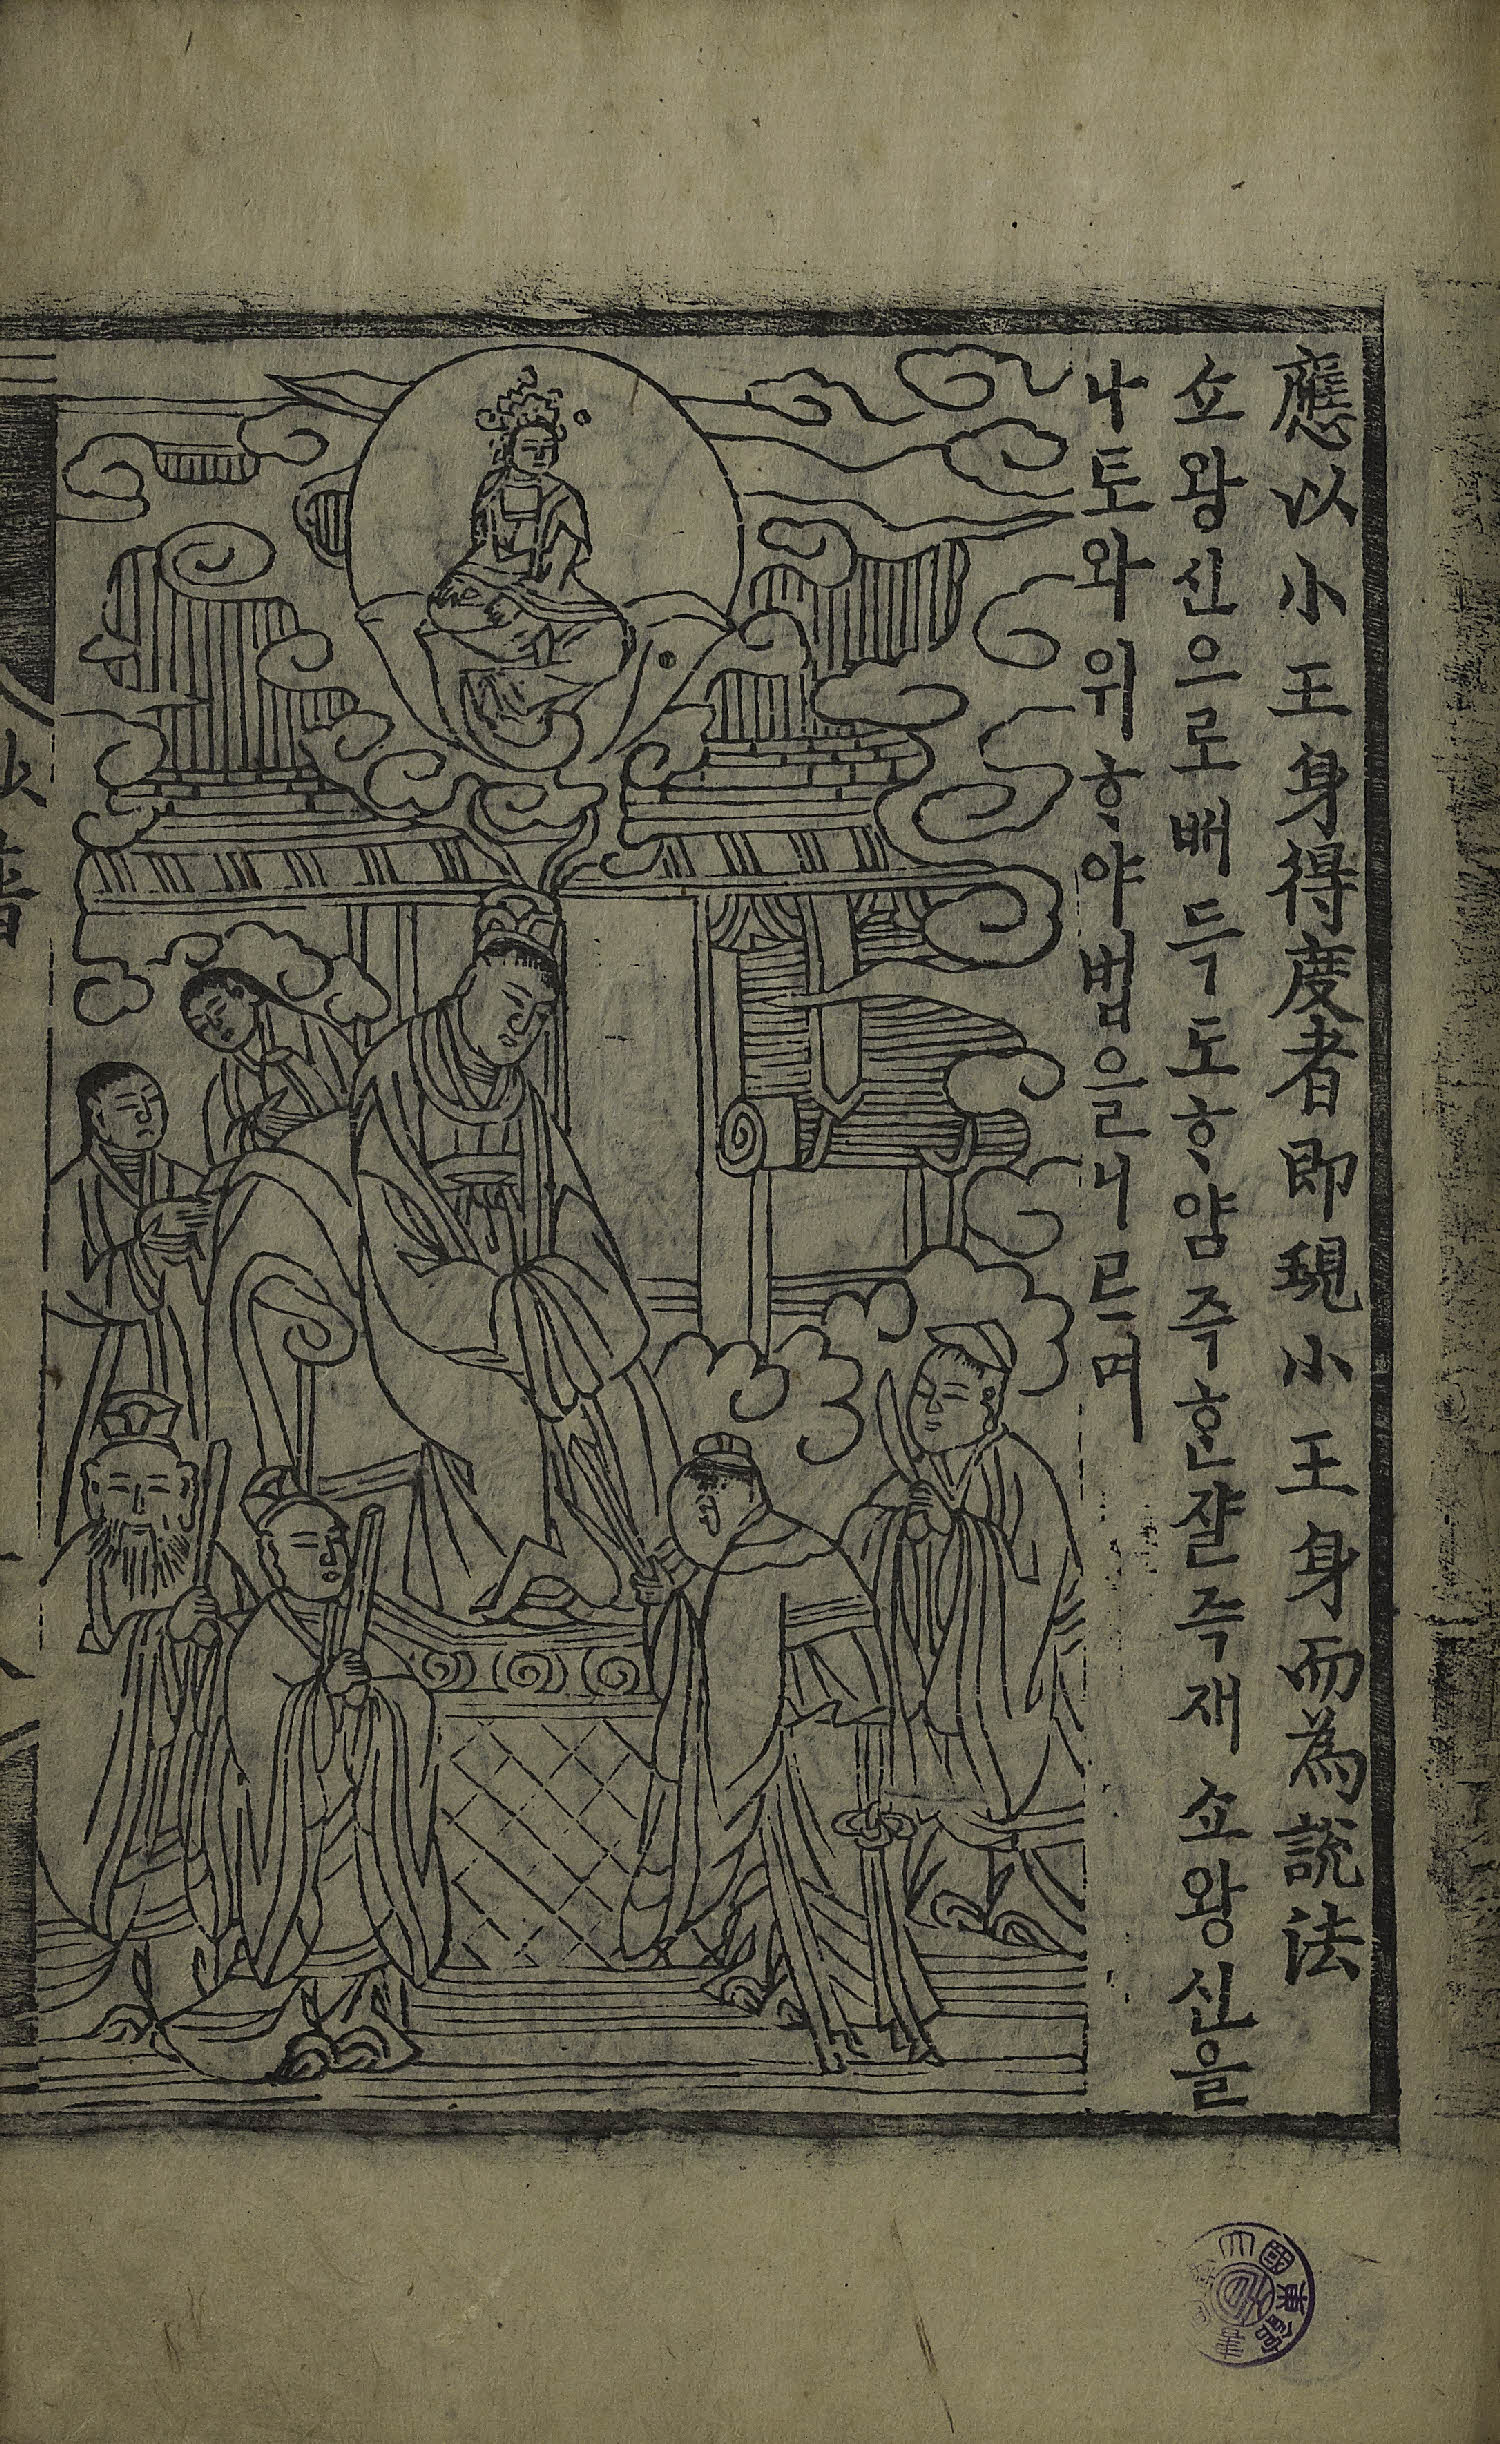 應以小王身得度者即現小王身而為說法
쇼왕신으로배득도ᄒᆞ얌즉ᄒᆞᆫ쟐즉재쇼왕신을
나토와위ᄒᆞ야법을니르며